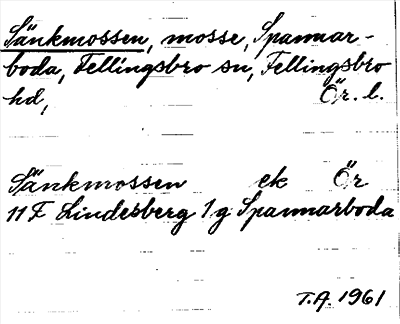 Sänkmossen, mosse, Spannar-
boda, Fellingsbro sn, Fellingsbro
hd, Ör. l.
Sänkmossen ek Ör
11 F Lindesberg 1 g Spannarboda
T.A. 1961